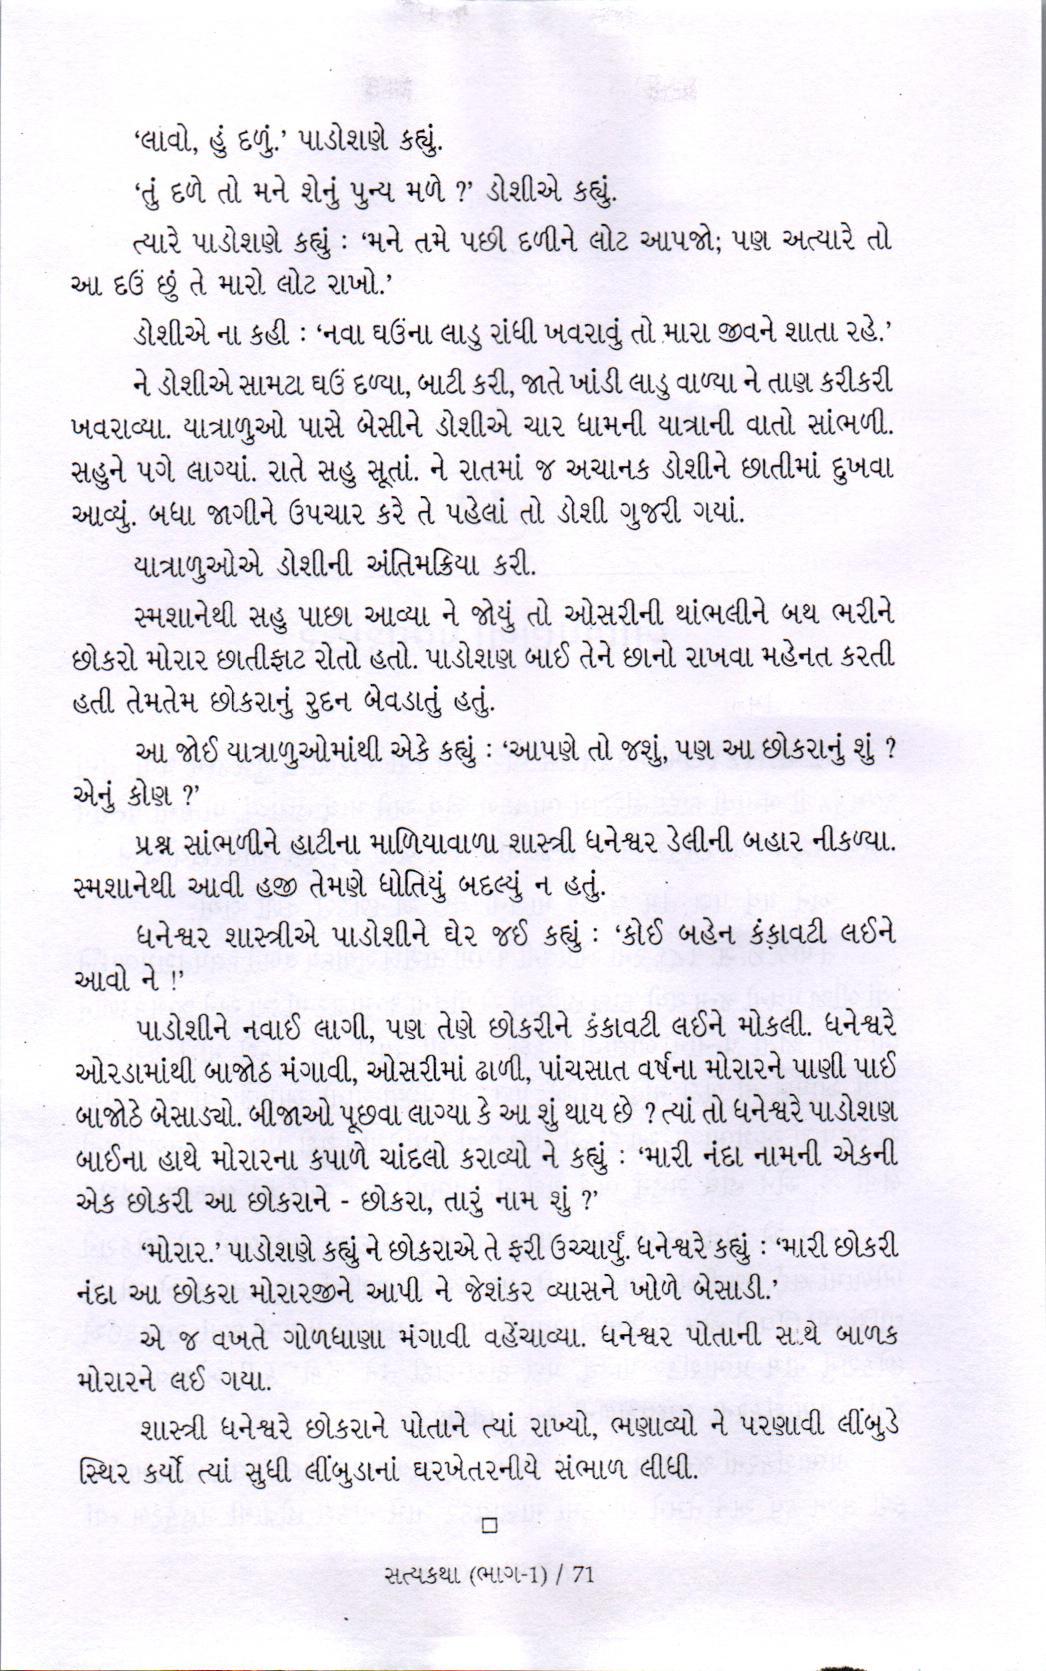 ‘લાવો, હું દળું.’ પાડોશણે કહ્યું.
‘તું દળે તો મને શેનું પુન્ય મળે ?’ ડોશીએ કહ્યું.
ત્યારે પાડોશણે કહ્યું : ‘મને તમે પછી દળીને લોટ આપજો; પણ અત્યારે તો
આ દઉં છું તે મારો લોટ રાખો.’
ડોશીએ ના કહી : ‘નવા ઘઉંના લાડુ રાંધી ખવરાવું તો મારા જીવને શાતા રહે.’
ને ડોશીએ સામટા ઘઉં દળ્યા, બાટી કરી, જાતે ખાંડી લાડુ વાળ્યા ને તાણ કરીકરી
ખવરાવ્યા. યાત્રાળુઓ પાસે બેસીને ડોશીએ ચાર ધામની યાત્રાની વાતો સાંભળી.
સહુને પગે લાગ્યાં. રાતે સહુ સૂતાં. ને રાતમાં જ અચાનક ડોશીને છાતીમાં દુખવા
આવ્યું. બધા જાગીને ઉપચાર કરે તે પહેલાં તો ડોશી ગુજરી ગયાં.
યાત્રાળુઓએ ડોશીની અંતિમક્રિયા કરી.
સ્મશાનેથી સહુ પાછા આવ્યા ને જોયું તો ઓસરીની થાંભલીને બથ ભરીને
છોકરો મોરાર છાતીફાટ રોતો હતો. પાડોશણ બાઈ તેને છાનો રાખવા મહેનત કરતી
હતી તેમતેમ છોકરાનું રુદન બેવડાતું હતું.
આ જોઈ યાત્રાળુઓમાંથી એકે કહ્યું : ‘આપણે તો જશું, પણ આ છોકરાનું શું ?
એનું કોણ ?’
પ્રશ્ન સાંભળીને હાટીના માળિયાવાળા શાસ્ત્રી ધનેશ્વર ડેલીની બહાર નીકળ્યા.
સ્મશાનેથી આવી હજી તેમણે ધોતિયું બદલ્યું ન હતું.
ધનેશ્વર શાસ્ત્રીએ પાડોશીને ઘેર જઈ કહ્યું : ‘કોઈ બહેન કંકાવટી લઈને
આવો ને !’
પાડોશીને નવાઈ લાગી, પણ તેણે છોકરીને કંકાવટી લઈને મોકલી. ધનેશ્વરે
ઓરડામાંથી બાજોઠ મંગાવી, ઓસરીમાં ઢાળી, પાંચસાત વર્ષના મોરારને પાણી પાઈ
બાજોઠે બેસાડ્યો. બીજાઓ પૂછવા લાગ્યા કે આ શું થાય છે ? ત્યાં તો ધનેશ્વરે પાડોશણ
બાઈના હાથે મોરારના કપાળે ચાંદલો કરાવ્યો ને કહ્યું : ‘મારી નંદા નામની એકની
એક છોકરી આ છોકરાને - છોકરા, તારું નામ શું ?’
‘મોરાર.’ પાડોશણે કહ્યું ને છોકરાએ તે ફરી ઉચ્ચાર્યું. ધનેશ્વરે કહ્યું : ‘મારી છોકરી
નંદા આ છોકરા મોરારજીને આપી ને જેશંકર વ્યાસને ખોળે બેસાડી.’
એ જ વખતે ગોળધાણા મંગાવી વહેંચાવ્યા. ધનેશ્વર પોતાની સાથે બાળક
મોરારને લઈ ગયા.
શાસ્ત્રી ધનેશ્વરે છોકરાને પોતાને ત્યાં રાખ્યો, ભણાવ્યો ને પરણાવી લીંબુડે
સ્થિર કર્યો ત્યાં સુધી લીંબુડાનાં ઘરખેતરનીયે સંભાળ લીધી.
સત્યકથા (ભાગ-1) / 71